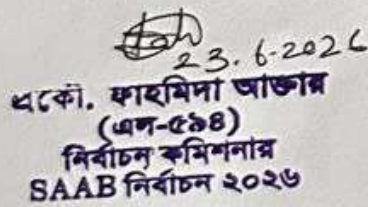 23.6.2026
এডভো. ফাহমিনা আক্তার
(এন-৫৯৪)
নির্বাচন কমিশনার
SAAB নির্বাচন ২০২৬